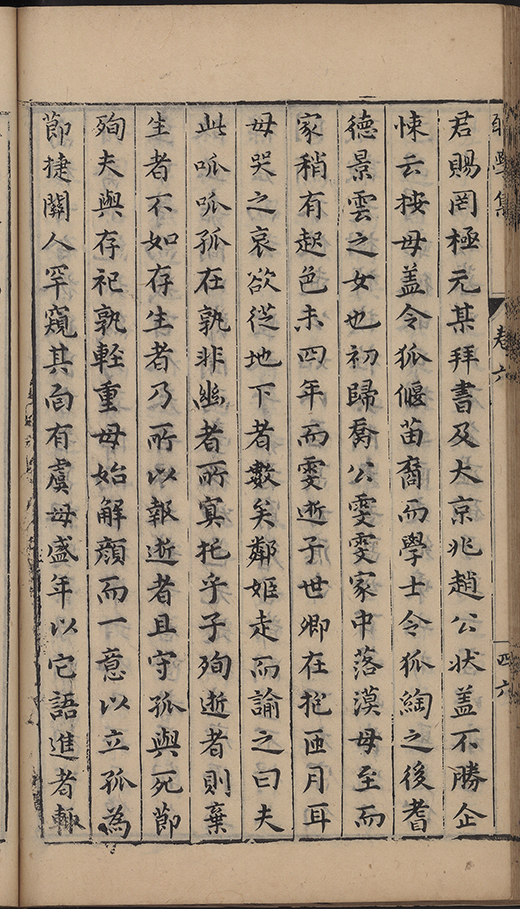 學集
卷六
四六
君賜罔極元某拜書及大京兆趙公狀盖不勝企
悚云按母盖令狐偃苗裔而學士令狐綯之後耆
德景雲之女也初歸喬公雯雯家中落漠母至而
家稍有起色未四年而雯逝子世卿在抱匝月耳
母哭之哀欲從地下者數矣鄰姬走而諭之曰夫
此呱呱孤在孰非幽者所寘托乎子殉逝者則棄
生者不如存生者乃所以報逝者且守孤與死節
殉夫與存祀孰輊重母始解顔而一意以立孤為
節捷關人罕窺其面有虞母盛年以它語進者輙